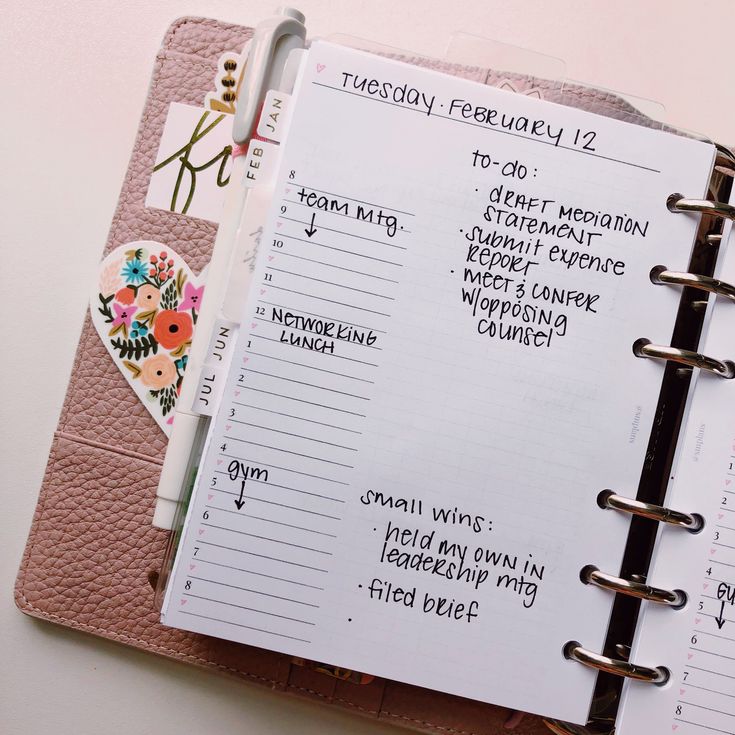 Tuesday · February 12
JAN
FEB
JUN
JUL
to-do:
· draft mediation
statement
· submit expense
report
· meet & confer
w/opposing
counsel
8
team mtg.
9
10
11
12 networking
lunch
1
2
3
4
gym
5
6
7
8
small wins:
· held my own in
leadership mtg
· filed brief
·
1
2
3
4
5
6
7
8